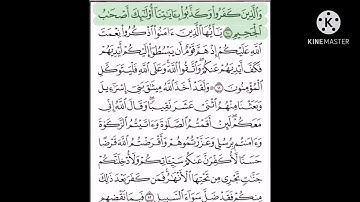 وَالَّذِينَ كَفَرُوا وَكَذَّبُوا بِآيَاتِنَا أُولَٰئِكَ أَصْحَابُ
الْجَحِيمِ يَا أَيُّهَا الَّذِينَ آمَنُوا اذْكُرُوا نِعْمَتَ
اللَّهِ عَلَيْكُمْ إِذْ هَمَّ قَوْمٌ أَن يَبْسُطُوا إِلَيْكُمْ أَيْدِيَهُمْ
فَكَفَّ أَيْدِيَهُمْ عَنكُمْ وَاتَّقُوا اللَّهَ وَعَلَى اللَّهِ فَلْيَتَوَكَّلِ
الْمُؤْمِنُونَ وَلَقَدْ أَخَذَ اللَّهُ مِيثَاقَ بَنِي إِسْرَائِيلَ
وَبَعَثْنَا مِنْهُمُ اثْنَيْ عَشَرَ نَقِيبًا وَقَالَ اللَّهُ إِنِّي
مَعَكُمْ لَئِنْ أَقَمْتُمُ الصَّلَاةَ وَآتَيْتُمُ الزَّكَاةَ
وَآمَنتُم بِرُسُلِي وَعَزَّرْتُمُوهُمْ وَأَقْرَضْتُمُ اللَّهَ قَرْضًا
حَسَنًا لَّأُكَفِّرَنَّ عَنكُمْ سَيِّئَاتِكُمْ وَلَأُدْخِلَنَّكُمْ
جَنَّاتٍ تَجْرِي مِن تَحْتِهَا الْأَنْهَارُ فَمَن كَفَرَ بَعْدَ ذَٰلِكَ
مِنكُمْ فَقَدْ ضَلَّ سَوَاءَ السَّبِيلِ ١٢ فَبِمَا نَقْضِهِم
Made with
KINEMASTER